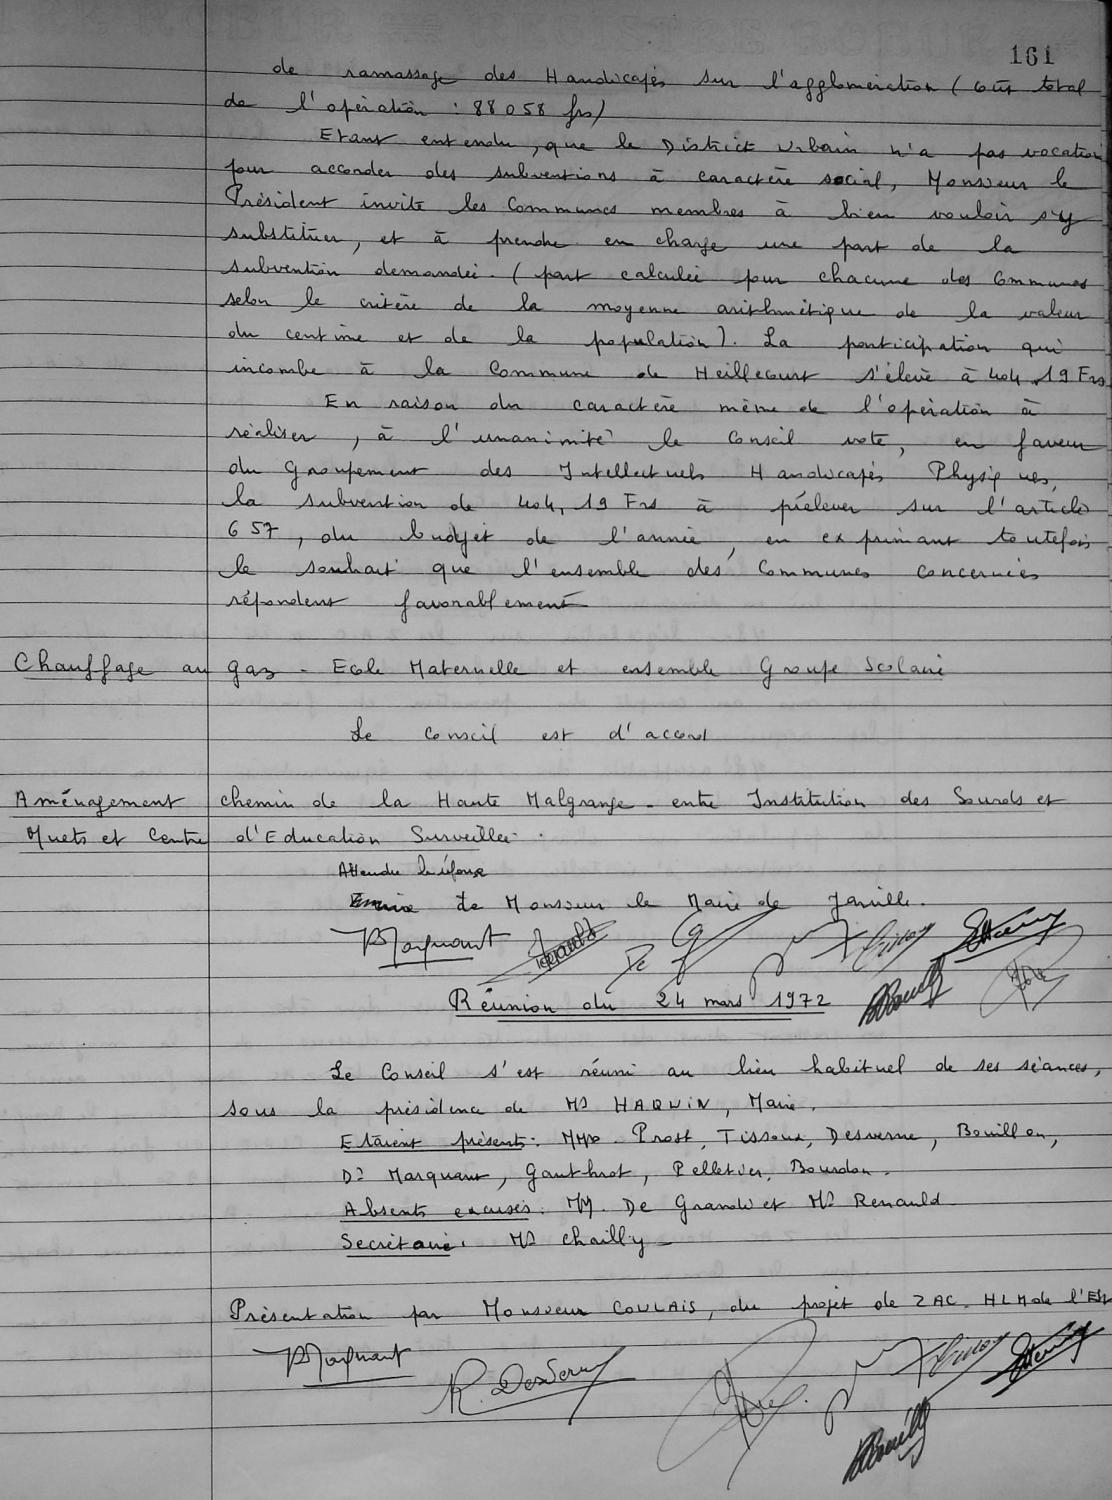 161
de ramassage des Handicapés sur l'agglomération (coût total
de l'opération : 88 058 frs)
Etant entendu, que le District Urbain n'a pas vocation
pour accorder des subventions à caractère social, Monsieur le
Président invite les Communes membres à bien vouloir s'y
substituer, et à prendre en charge une part de la
subvention demandée. (part calculée pour chacune des Communes
selon le critère de la moyenne arithmétique de la valeur
du centime et de la population). La participation qui
incombe à la Commune de Heillecourt s'élève à 404,19 Frs
En raison du caractère même de l'opération à
réaliser, à l'unanimité le Conseil vote, en faveur
du Groupement des Intellectuels Handicapés Physiques,
la subvention de 404,19 Frs à prélever sur l'article
657, du budget de l'année, en exprimant toutefois
le souhait que l'ensemble des Communes concernées
répondent favorablement
Chauffage au gaz - Ecole Maternelle et ensemble Groupe Scolaire
Le Conseil est d'accord
Aménagement chemin de la Haute Malgrange - entre Institution des Sourds et
Muets et Centre d'Education Surveillée.
Attendre la réponse
de Monsieur le Maire de Jarville.
Marquant
Réunion du 24 mars 1972
Le Conseil s'est réuni au lieu habituel de ses séances,
sous la présidence de Mr HAQUIN, Maire.
Etaient présents : MMrs. Prost, Tissoux, Desserne, Bouillon,
Dr Marquant, Gauthrot, Pelletier, Bourdon.
Absents excusés : MM. De Grandi et Mr Renauld
Secrétaire : Mr Chailly
Présentation par Monsieur COULAIS, du projet de ZAC. HLM de l'Est
Marquant R. Desserne